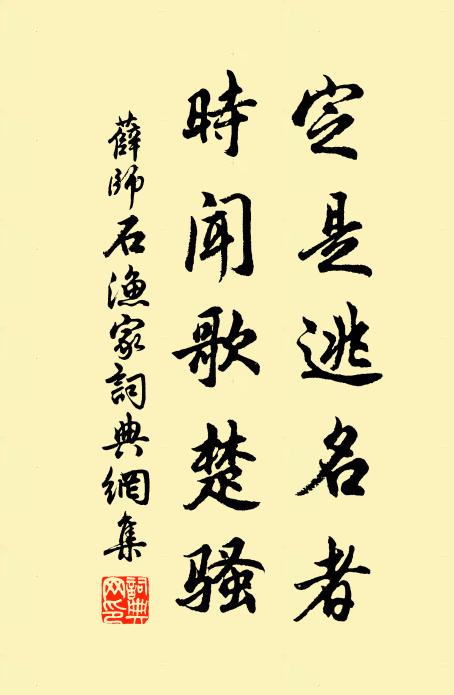 定是逃名者
時聞歌楚騷
薛師石漁家詞典網集